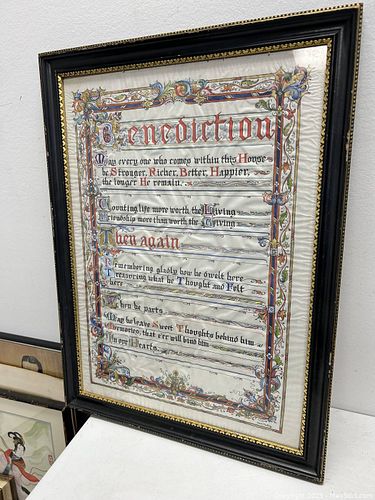 Benediction
May every one who comes within this House
be Stronger, Richer, Better, Happier,
the longer He remain.
Counting life more worth the Living
Friendship more than worth the Giving
Then again
Remembering gladly how he dwelt here
Treasuring what he Thought and Felt
here
When he parts
May he leave Sweet Thoughts behind him
Memories, that e'er will bind him
To our Hearts.